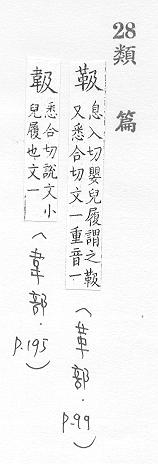 28類篇
靸息入切嬰兒履謂之靸
又悉合切文一重音一
(革部.
p.99)
䪚悉合切說文小
兒履也文一
(韋部.
p.195)